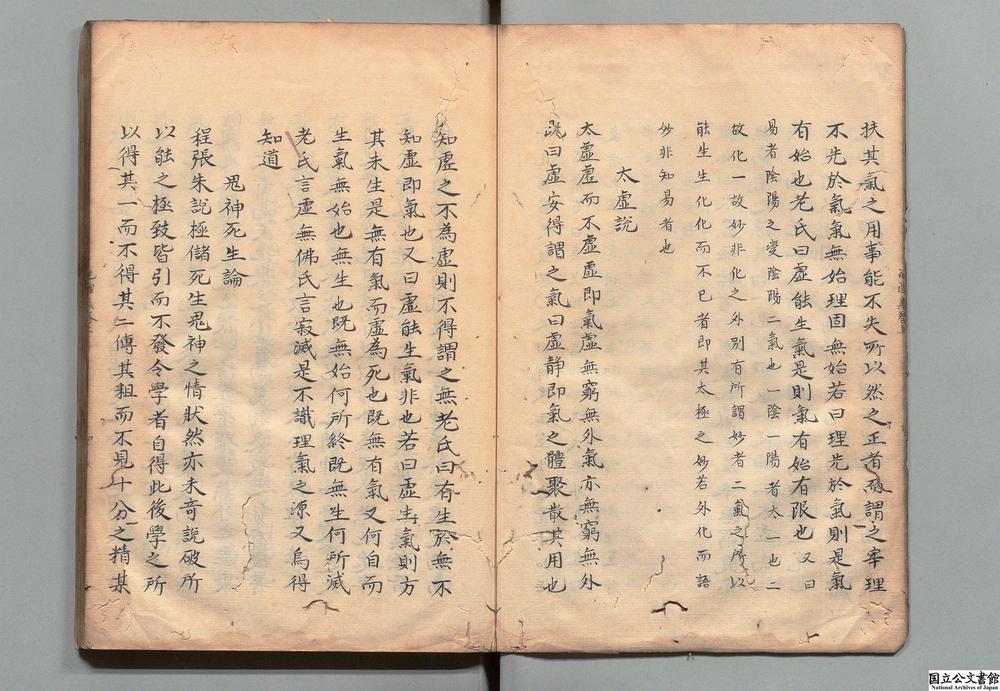 扶其氣之用事能不失所以然之正者而謂之宰理
不先於氣氣無始理固無始若曰理先於氣則是氣
有始也老氏曰虛能生氣是則氣有始有限也又曰
易者陰陽之變陰陽二氣也一陰一陽者太一也二
故化一故妙非化之外別有所謂妙者二氣之所以
能生生化化而不已者即其太極之妙若外化而語
妙非知易者也
太虛說
太虛虛而不虛虛即氣虛無窮無外氣亦無窮無外
既曰虛安得謂之氣曰虛静即氣之體聚散其用也
知虛之不為虛則不得謂之無老氏曰有生於無不
知虛即氣也又曰虛能生氣非也若曰虛生氣則方
其未生是無有氣而虛為死也既無有氣又何自而
生氣無始也無生也既無始何所終既無生何所滅
老氏言虛無佛氏言寂滅是不識理氣之源又烏得
知道
鬼神死生論
程張朱說極儲死生鬼神之情狀然亦未奇說破所
以能之極致皆引而不發令學者自得此後學之所
以得其一而不得其二傳其粗而不見十分之精某
国立公文書館
National Archives of Japan